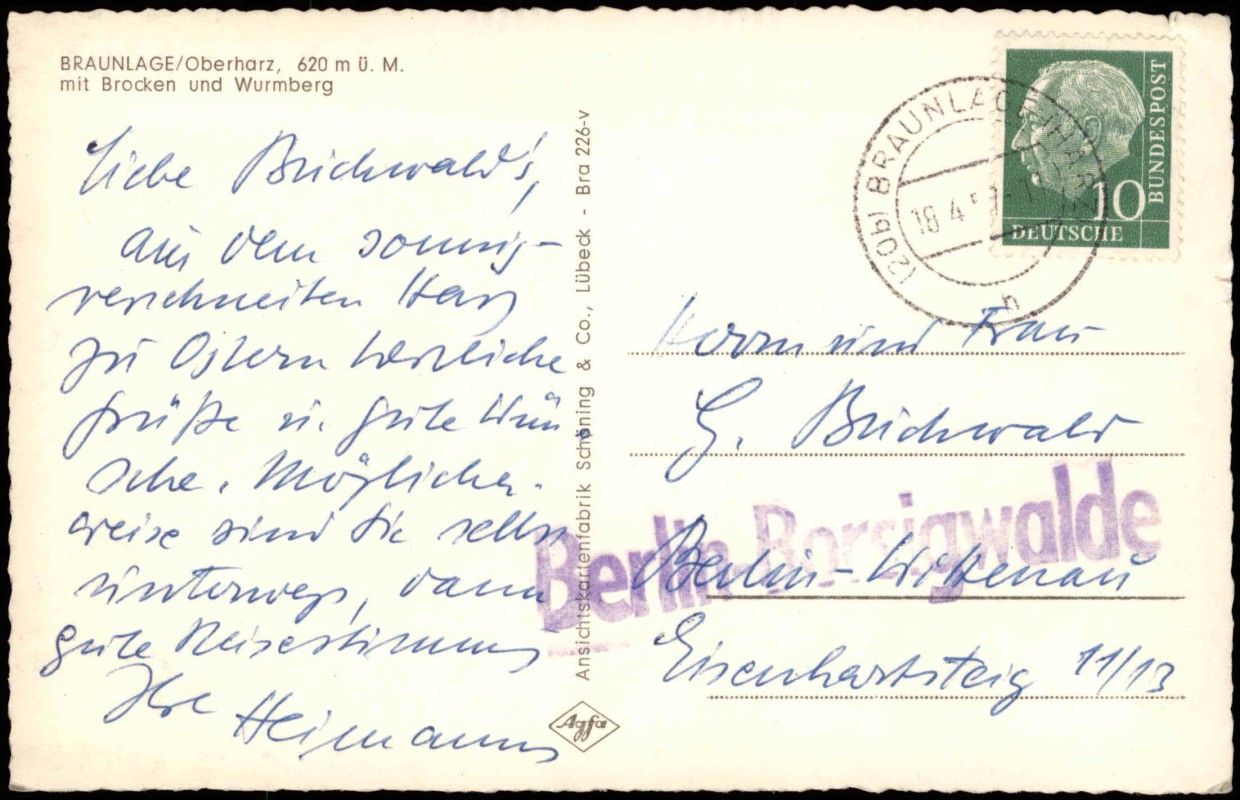 BRAUNLAGE/Oberharz, 620 m ü. M.
mit Brocken und Wurmberg
Liebe Buchwald's,
aus dem sonnig-
verschneiten Harz
zu Ostern herzliche
Grüße u. gute Wün
sche. Möglicher-
weise sind Sie selbst
unterwegs, dann
gute Reisestimmung
Ihre Heimanns
Ansichtskartenfabrik Schöning & Co., Lübeck - Bra 226-v
Agfa
(20b) BRAUNLAGE (HARZ)
18.4.
h
10
BUNDESPOST
DEUTSCHE
Herrn und Frau
G. Buchwald
Berlin-Borsigwalde
Berlin-Wittenau
Eisenhartsteig 11/13